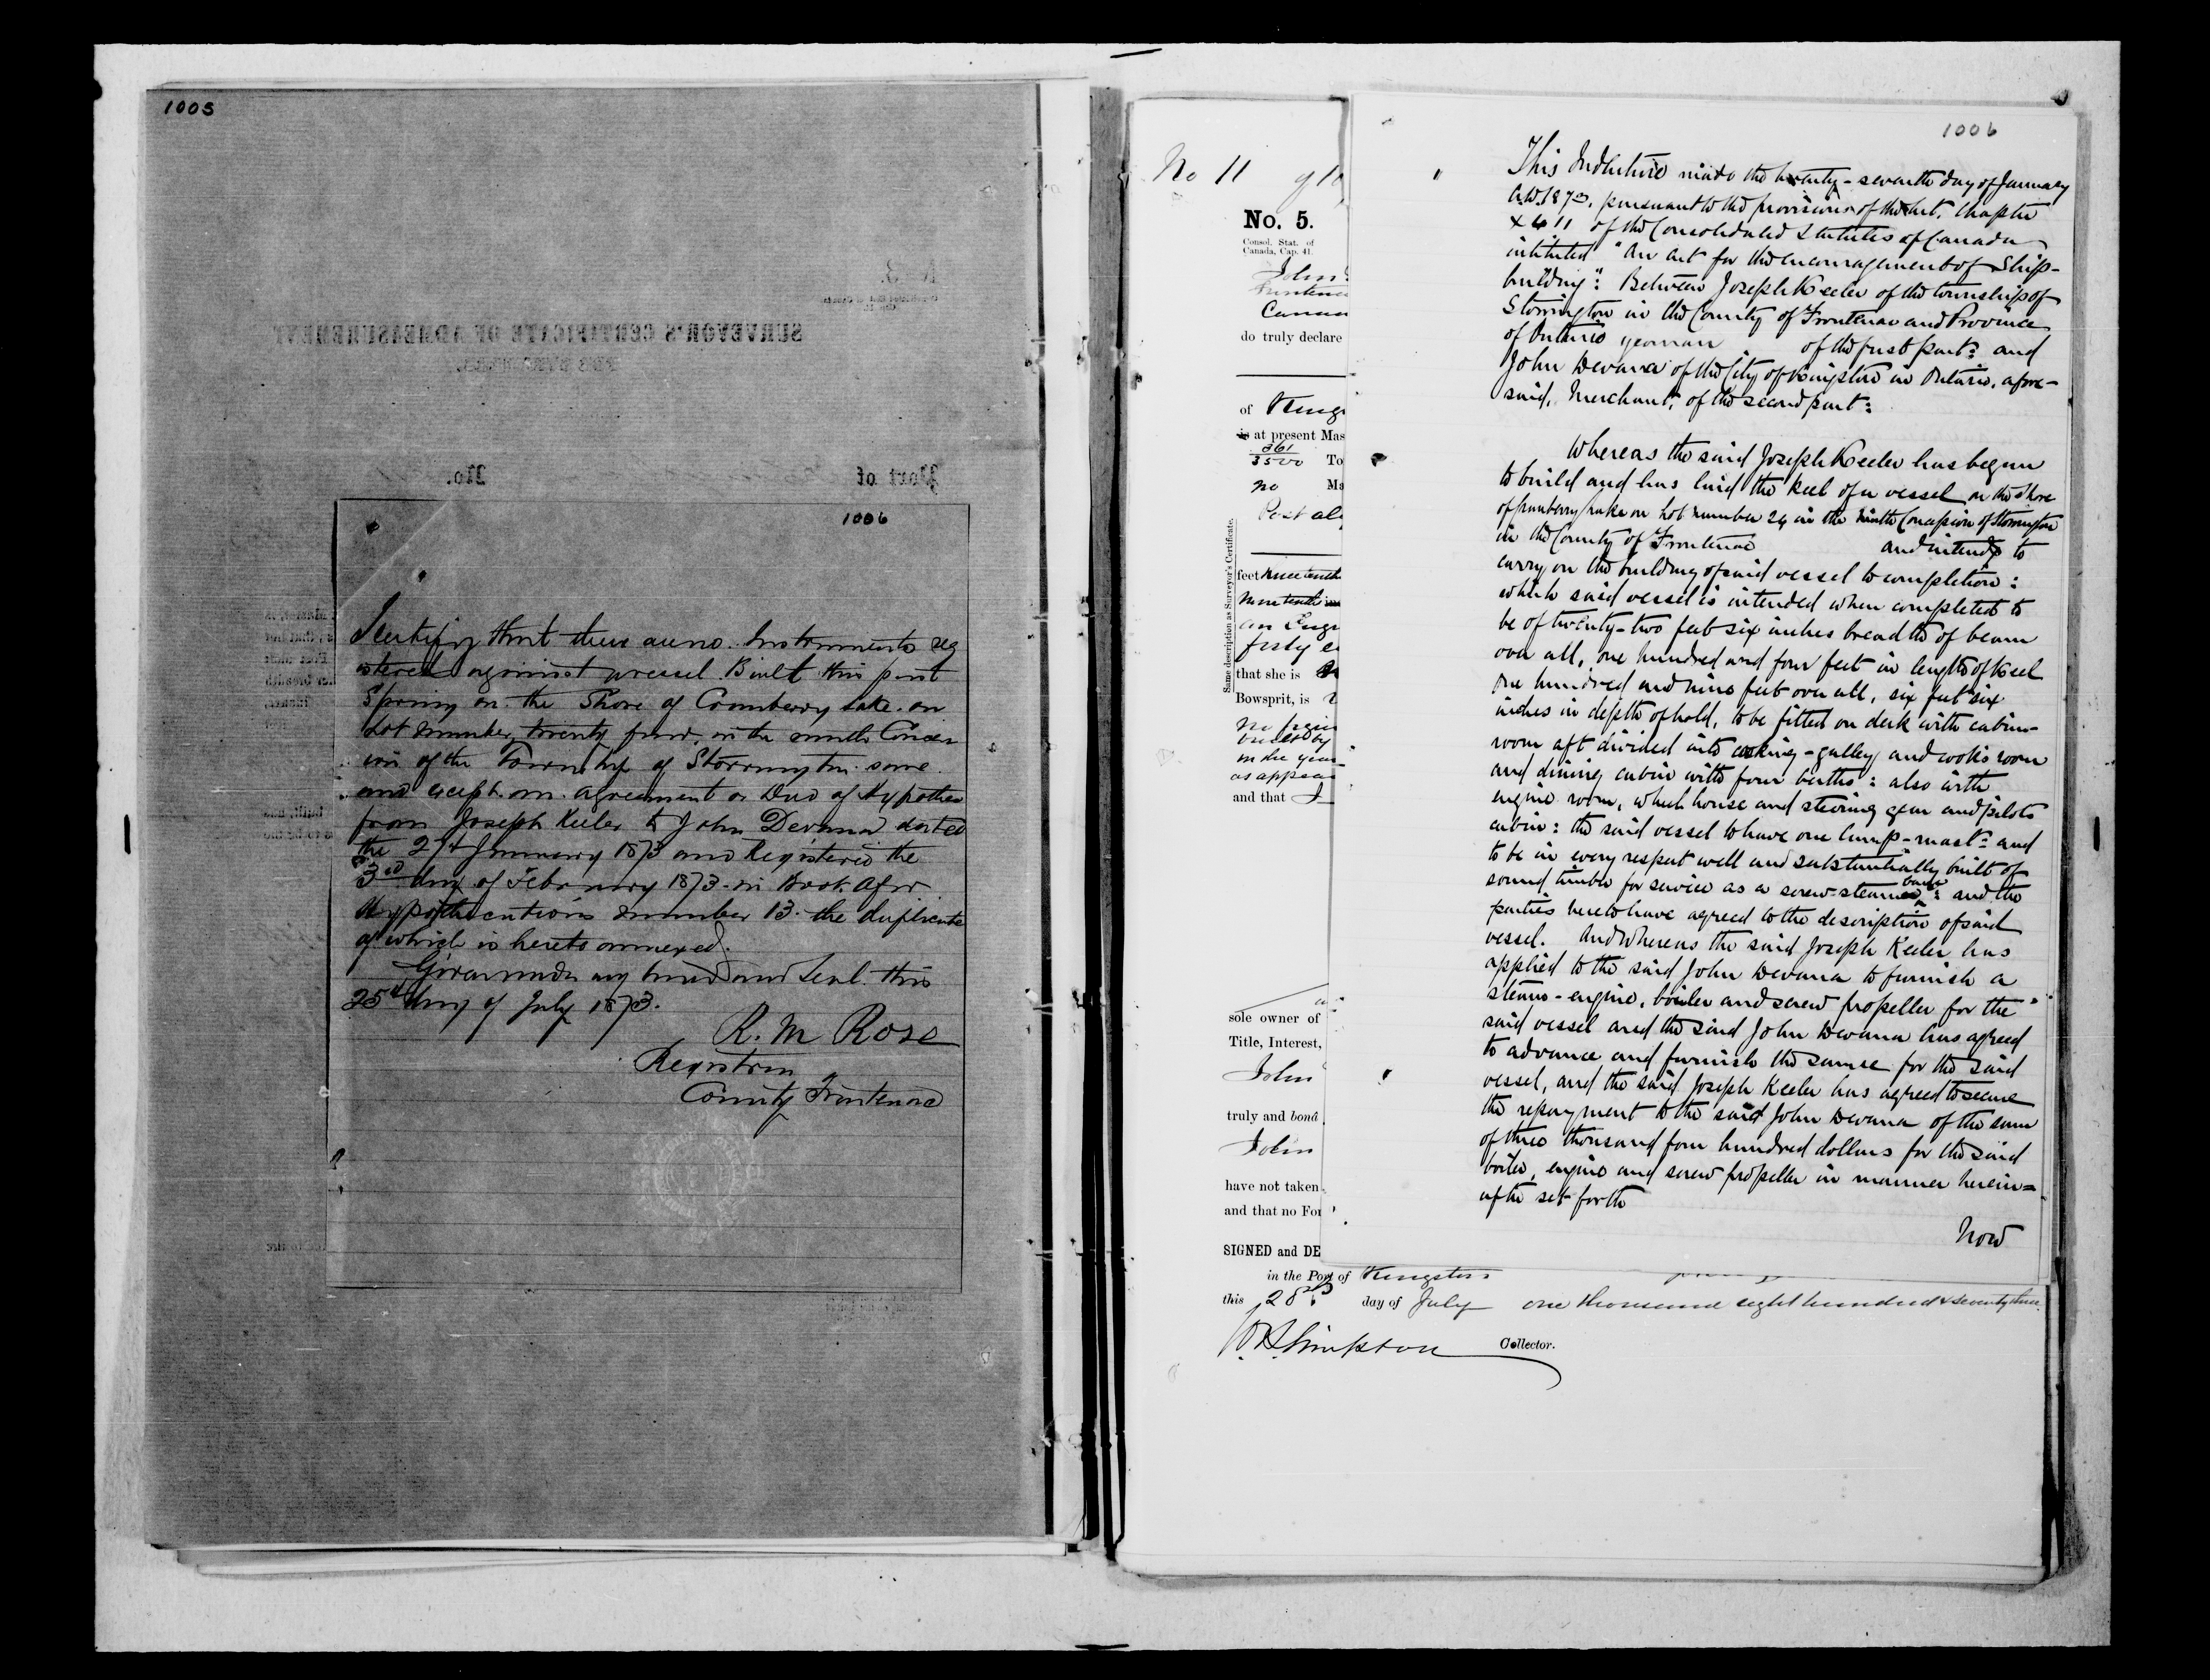 1005
No. 3.
SURVEYOR'S CERTIFICATE OF ADMEASUREMENT
Port of No.
1006
I certify that there are no Instruments reg
istered against a vessel Built this past
Spring on the Shore of Cranberry Lake on
Lot number twenty four in the ninth Conces
ion of the Township of Storrington save
and except an agreement or Deed of Hypothec
from Joseph Keeler to John Devana dated
the 27th January 1873 and Registered the
3rd day of February 1873 in Book A for
Hypothecations number 13 the duplicate
of which is hereto annexed.
Given under my hand and Seal this
25th day of July 1873.
R. M Rose
Registrar
County Frontenac
No 11
No. 5.
Consol. Stat. of
Canada, Cap. 41.
John
Frontenac
Canad
do truly declare
of Kings
is at present Mas
361
3500 To
no Ma
Post al
Same description as Surveyor's Certificate.
feet nine tenth
nine tenth in
an Engi
forty e
that she is
Bowsprit, is
no
in the year
as appear
and that I
sole owner of
Title, Interest,
John
truly and bonâ
John
have not taken
and that no For
SIGNED and DE
in the Port of Kingston
this 28th day of July one thousand eight hundred & seventy three.
Collector.
1006
This Indenture made the twenty-seventh day of January
A.D. 1873, pursuant to the provisions of the Act, Chapter
x 411 of the Consolidated Statutes of Canada
intituled "An Act for the encouragement of Ship-
building": Between Joseph Keeler of the township of
Storrington in the County of Frontenac and Province
of Ontario yeoman of the first part: and
John Devana of the City of Kingston in Ontario, afore-
said, Merchant, of the second part:
Whereas the said Joseph Keeler has begun
to build and has laid the keel of a vessel on the Shore
of Cranberry Lake on Lot number 24 in the Ninth Concession of Storrington
in the County of Frontenac and intends to
carry on the building of said vessel to completion:
which said vessel is intended when completed to
be of twenty-two feet six inches breadth of beam
over all, one hundred and four feet in length of Keel
one hundred and nine feet over all, six feet six
inches in depth of hold, to be fitted on deck with cabin-
room aft divided into cooking-galley and cook's room
and dining cabin with four berths: also with
engine room, wheel house and steering gear and pilots
cabin: the said vessel to have one lamp-mast: and
to be in every respect well and substantially built of
sound timber for service as a screw-steam barge: and the
parties hereto have agreed to the description of said
vessel. And Whereas the said Joseph Keeler has
applied to the said John Devana to furnish a
steam-engine, boiler and screw propeller for the
said vessel and the said John Devana has agreed
to advance and furnish the same for the said
vessel, and the said Joseph Keeler has agreed to secure
the repayment to the said John Devana of the sum
of three thousand four hundred dollars for the said
boiler, engine and screw propeller in manner herein=
after set forth
Now